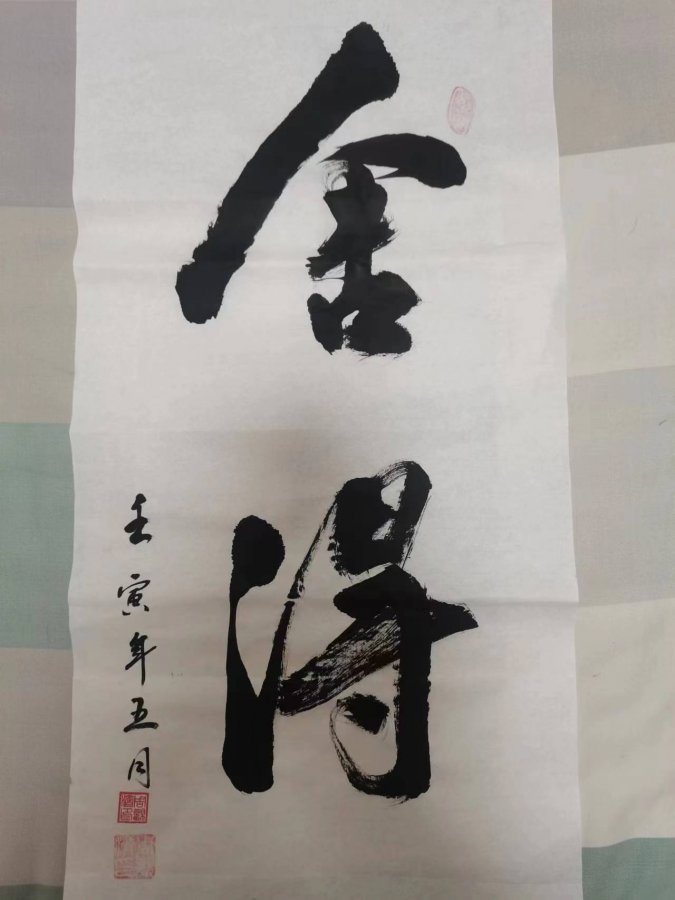 舍得
壬寅年五月